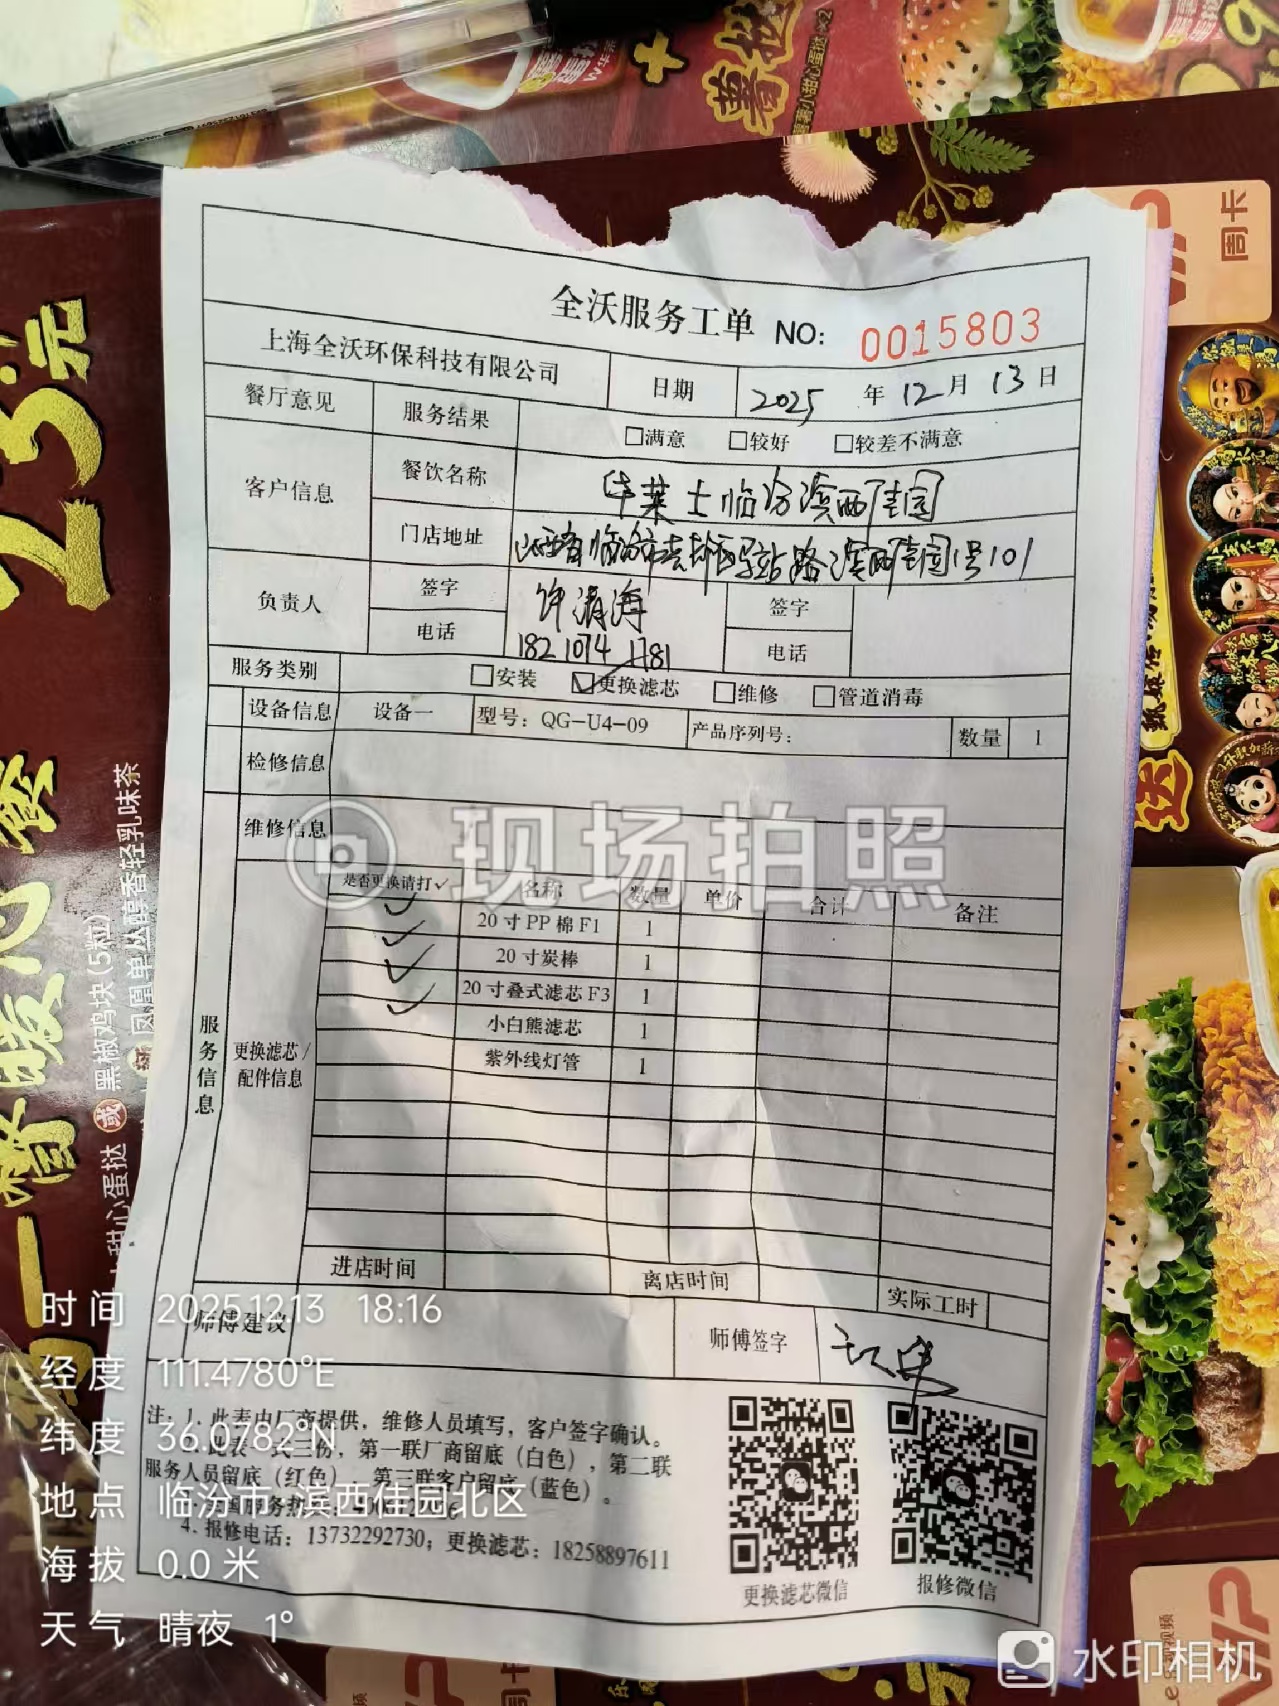 薯挞
蜜薯小甜心蛋挞×2
周卡
23.元
黑椒鸡块(5粒)
凤凰单丛醇香轻乳味茶
全沃服务工单 NO: 0015803
上海全沃环保科技有限公司 日期 2025 年 12 月 13 日
餐厅意见 服务结果 □满意 □较好 □较差不满意
客户信息 餐饮名称 华莱士临汾滨西佳园
门店地址 滨西佳园1号101
负责人 签字 许清海 签字
电话 182 1074 1781 电话
服务类别 □安装 ☑更换滤芯 □维修 □管道消毒
设备信息 设备一 型号: QG-U4-09 产品序列号: 数量 1
检修信息
维修信息
现场拍照
服务信息 更换滤芯/配件信息
是否更换请打✓ 名称 数量 单价 合计 备注
✓ 20寸PP棉F1 1
✓ 20寸炭棒 1
✓ 20寸叠式滤芯F3 1
✓ 小白熊滤芯 1
紫外线灯管 1
进店时间 离店时间 实际工时
师傅建议 师傅签字
注: 1. 此表由厂商提供，维修人员填写，客户签字确认。
此表一式三份，第一联厂商留底（白色），第二联
服务人员留底（红色），第三联客户留底（蓝色）。
4. 报修电话: 13732292730; 更换滤芯: 18258897611
更换滤芯微信 报修微信
时间 2025.12.13 18:16
经度 111.4780°E
纬度 36.0782°N
地点 临汾市·滨西佳园北区
海拔 0.0米
天气 晴夜 1°
水印相机